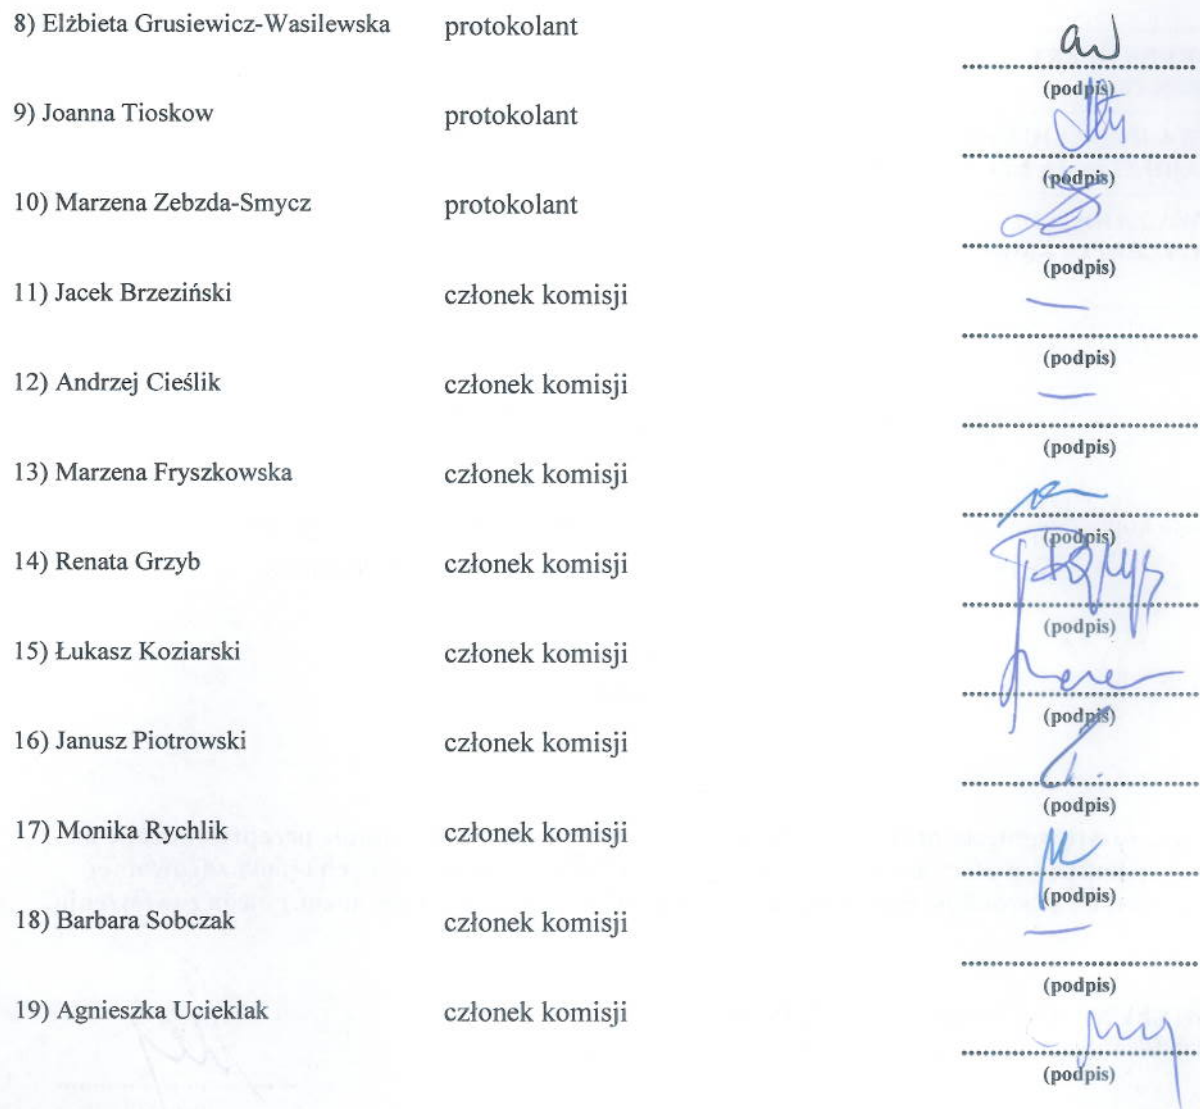 8) Elżbieta Grusiewicz-Wasilewska protokolant
(podpis)
9) Joanna Tioskow protokolant
(podpis)
10) Marzena Zebzda-Smycz protokolant
(podpis)
11) Jacek Brzeziński członek komisji
(podpis)
12) Andrzej Cieślik członek komisji
(podpis)
13) Marzena Fryszkowska członek komisji
(podpis)
14) Renata Grzyb członek komisji
(podpis)
15) Łukasz Koziarski członek komisji
(podpis)
16) Janusz Piotrowski członek komisji
(podpis)
17) Monika Rychlik członek komisji
(podpis)
18) Barbara Sobczak członek komisji
(podpis)
19) Agnieszka Ucieklak członek komisji
(podpis)